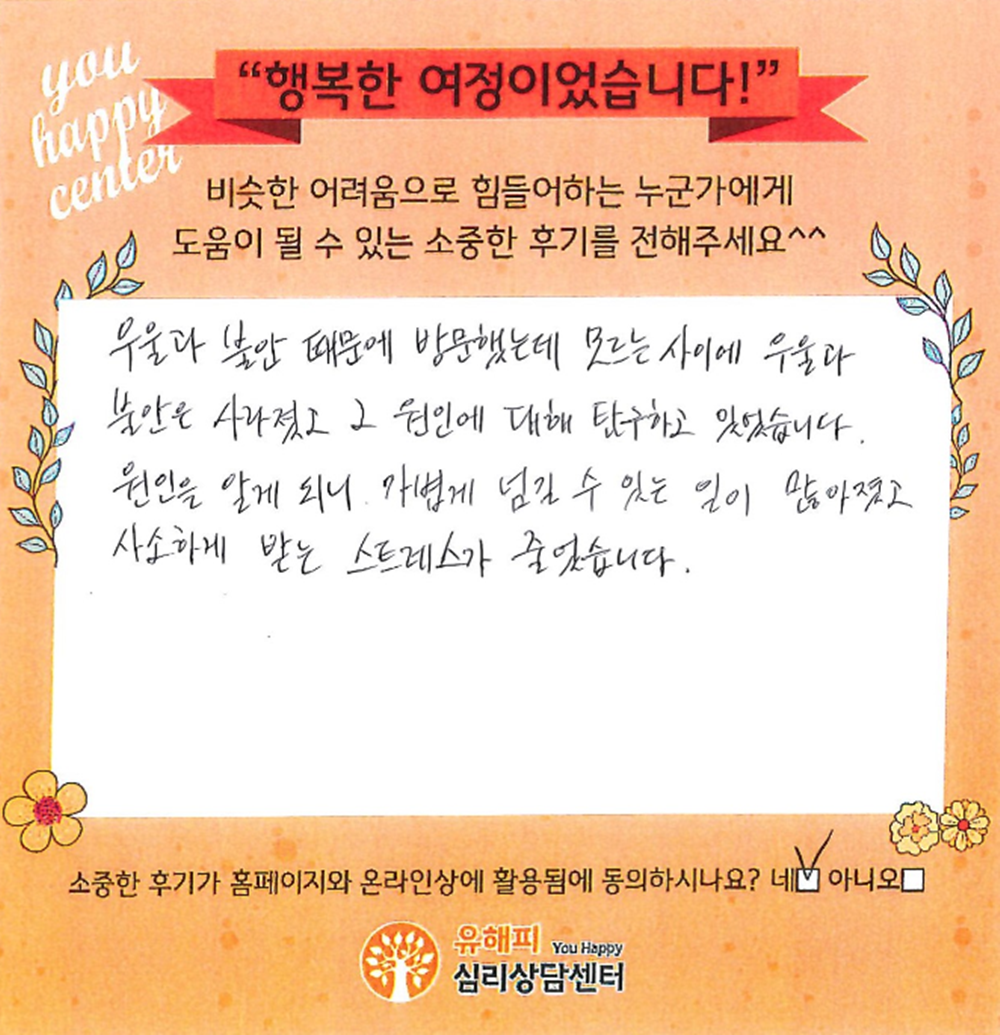 you
happy
center
“행복한 여정이었습니다!”
비슷한 어려움으로 힘들어하는 누군가에게
도움이 될 수 있는 소중한 후기를 전해주세요^^
우울과 불안 때문에 방문했는데 모르는 사이에 우울과
불안은 사라졌고 그 원인에 대해 탐구하고 있었습니다.
원인을 알게 되니 가볍게 넘길 수 있는 일이 많아졌고
사소하게 받는 스트레스가 줄었습니다.
소중한 후기가 홈페이지와 온라인상에 활용됨에 동의하시나요? 네 아니오
유해피 You Happy
심리상담센터